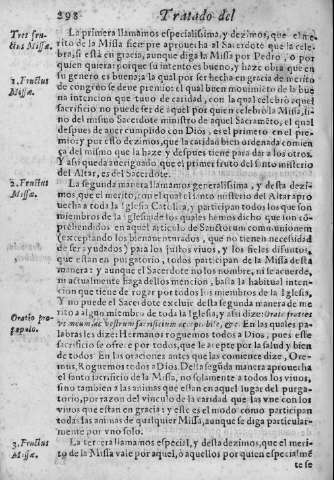 298 Tratado del
Tres fru-
ctus Missæ.
La primera llamamos especialissima, y dezimos, que el me-
rito de la Missa siempre aprouecha al Sacerdote que la cele-
bra, si està en gracia, aunque diga la Missa por Pedro, o por
quien quiera: porque su intento es bueno, y haze obra que en
1. Fructus
Missæ.
su genero es buena; a la qual por ser hecha en gracia de merito
de congruo se deue premio: el qual buen mouimiẽto de la bue
na intencion que tuuo de caridad, con la qual celebrò aquel
sacrificio no puede ser de aquel por quien celebrò la Missa, si-
no del mismo Sacerdote ministro de aquel Sacramẽto, el qual
despues de auer cumplido con Dios, es el primero en el pre-
mio: y por esto dezimos, que la caridad bien ordenada comien
ça del mismo que la haze y despues tiene para dar a los otros.
Y assi queda aueriguado, que el primer fruto del santo misterio
del Altar, es del Sacerdote.
2. Fructus
Missæ.
La segunda manera llamamos generalissima, y desta dezi-
mos, que el merito, con el qual el santo misterio del Altar apro
uecha a toda la Iglesia Catolica, y participan todos los que son
miembros de la Iglesia, de los quales hemos dicho que son cõ-
prehendidos en aquel articulo de Sanctorum communionem
(exceptando los bienauenturados, que no tienen necessidad
de ser ayudados) para los justos viuos, y los fieles difuntos,
que estan en purgatorio, todos participan de la Missa desta
manera: y aunque el Sacerdote no los nombre, ni se acuerde,
ni actualmente haga dellos mencion, basta la habitual inten-
cion que tiene de rogar por todos los miembros de la Iglesia,
Y no puede el Sacerdote excluir desta segunda manera de me-
rito a algun miembro de toda la Iglesia, y assi dize: Orate fratres
Oratio pro
populo.
vt meum ac vestrum sacrificium acceptabile, &c. En las quales pa-
labras les dize: Hermanos roguemos todos a Dios, pues este
sacrificio se ofrece por todos, que le acepte por la salud y bien
de todos En las oraciones antes que las comience dize, Ore-
mus, Roguemos todos a Dios. Desta segũda manera aprouecha
el santo sacrificio de la Missa, no solamente a todos los viuos,
sino tambien a las animas que estan en aquel lugar del purga-
torio, por razon del vinculo de la caridad que las vne con los
viuos que estan en gracia: y este es el modo como participan
todas las animas de qualquier Missa, aunque se diga particular-
mente por vno solo.
3. Fructus
Missæ.
La tercera llamamos especial, y desta dezimos, que el meri-
to de la Missa vale por aquel, ò aquellos por quien especialmẽ
te se